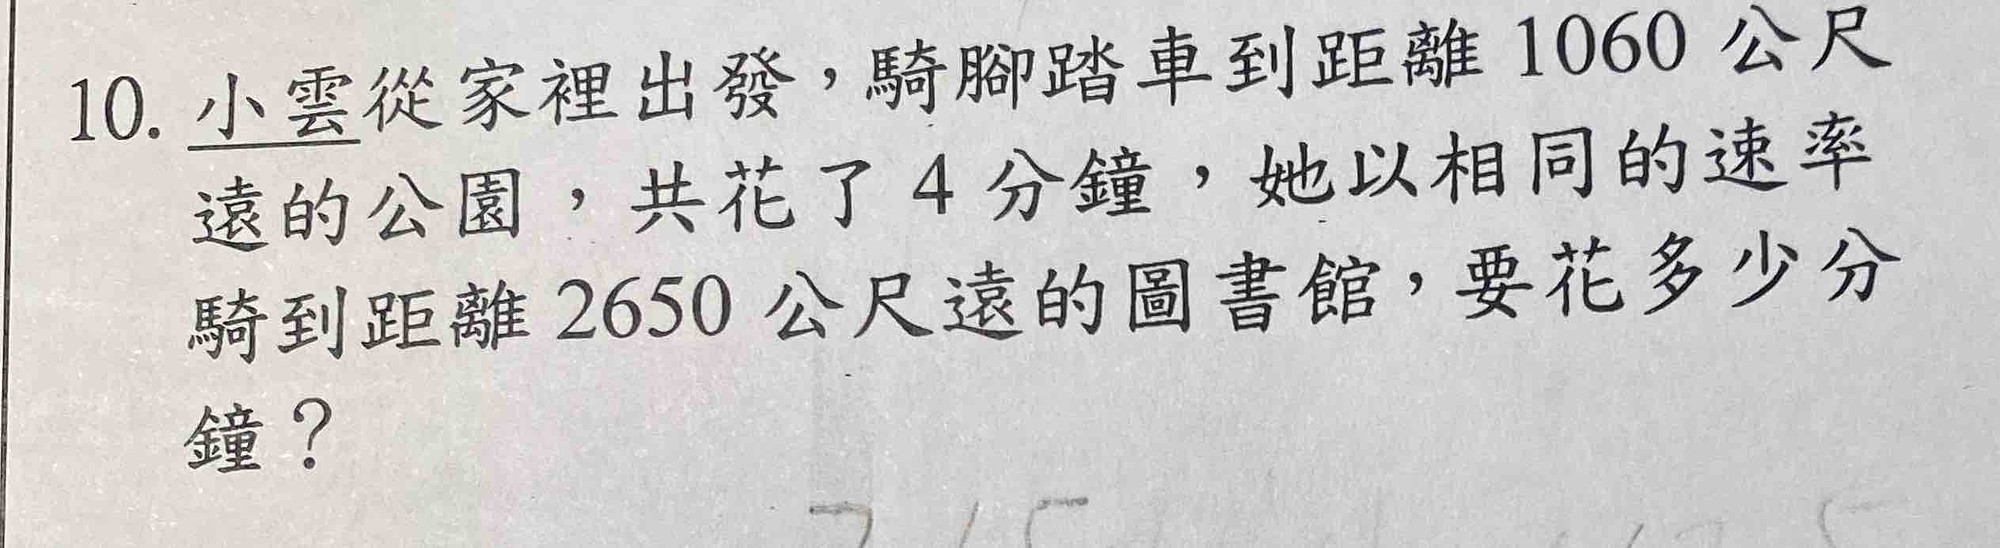 10. 小雲從家裡出發，騎腳踏車到距離 1060 公尺
遠的公園，共花了 4 分鐘，她以相同的速率
騎到距離 2650 公尺遠的圖書館，要花多少分
鐘？